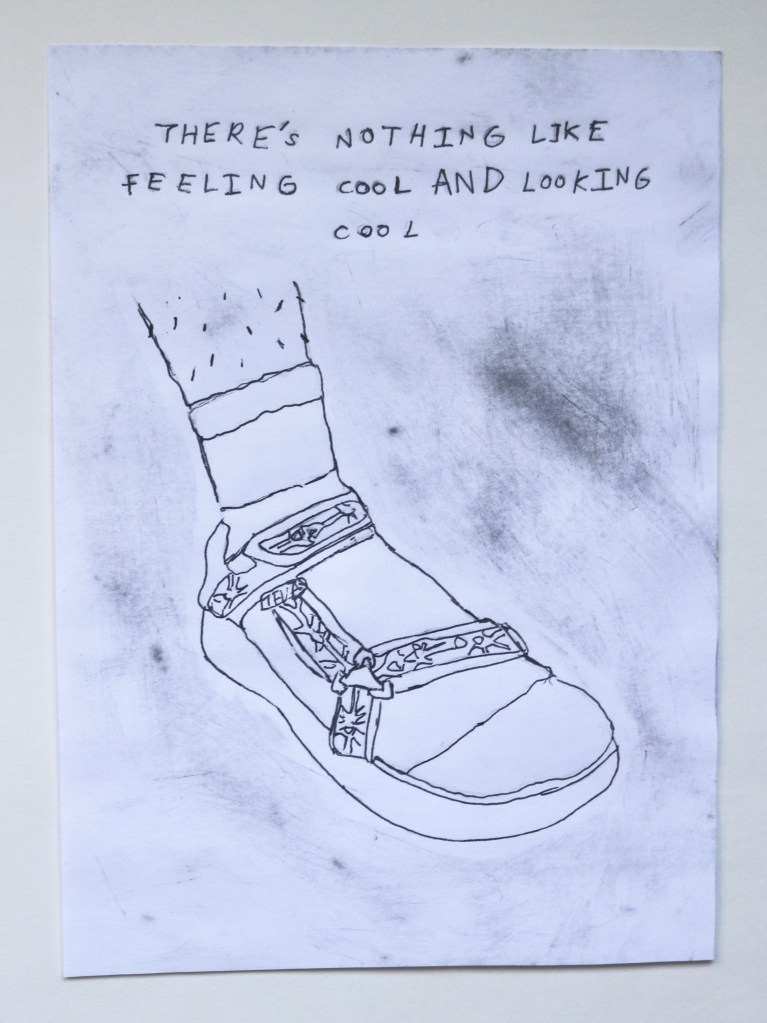 THERE'S NOTHING LIKE
FEELING COOL AND LOOKING
COOL
TEVA